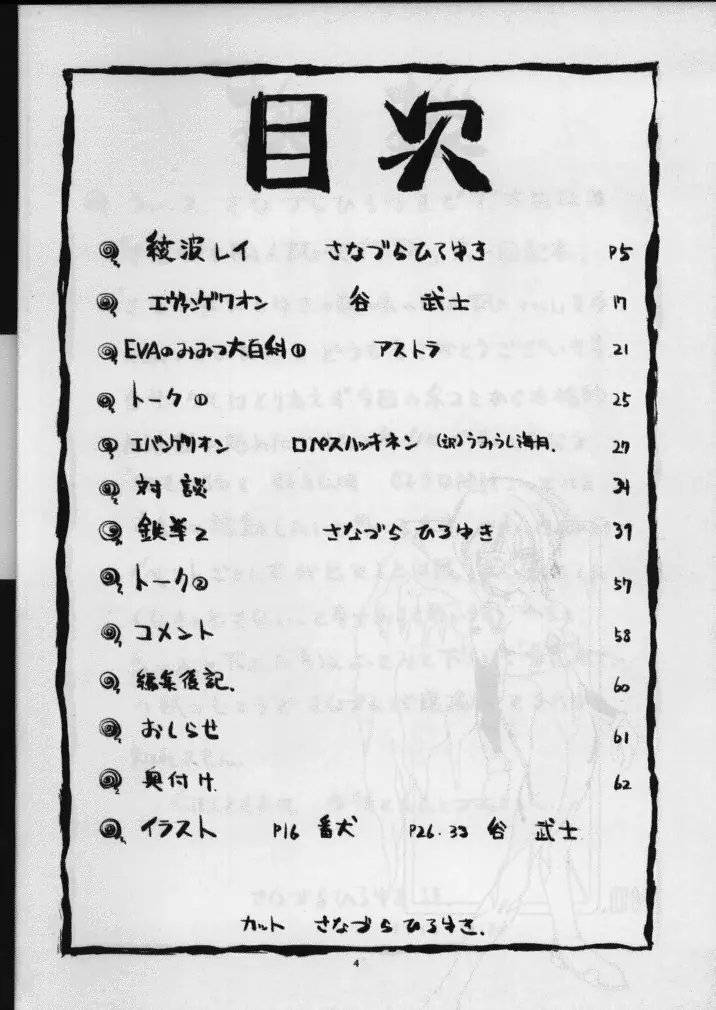 目次
綾波レイ さなづらひろゆき P5
エヴァンゲリオン 谷 武士 17
EVAのみみつ大百科① アストラ 21
トーク① 25
エバンゲリオン ロペスハッキネン (訳)うみうし海月. 27
対談 34
鉄拳2 さなづらひろゆき 37
トーク② 57
コメント 58
編集後記. 60
おしらせ 61
奥付け. 62
イラスト P16 番犬 P26・33 谷 武士
カット さなづらひろゆき.
4